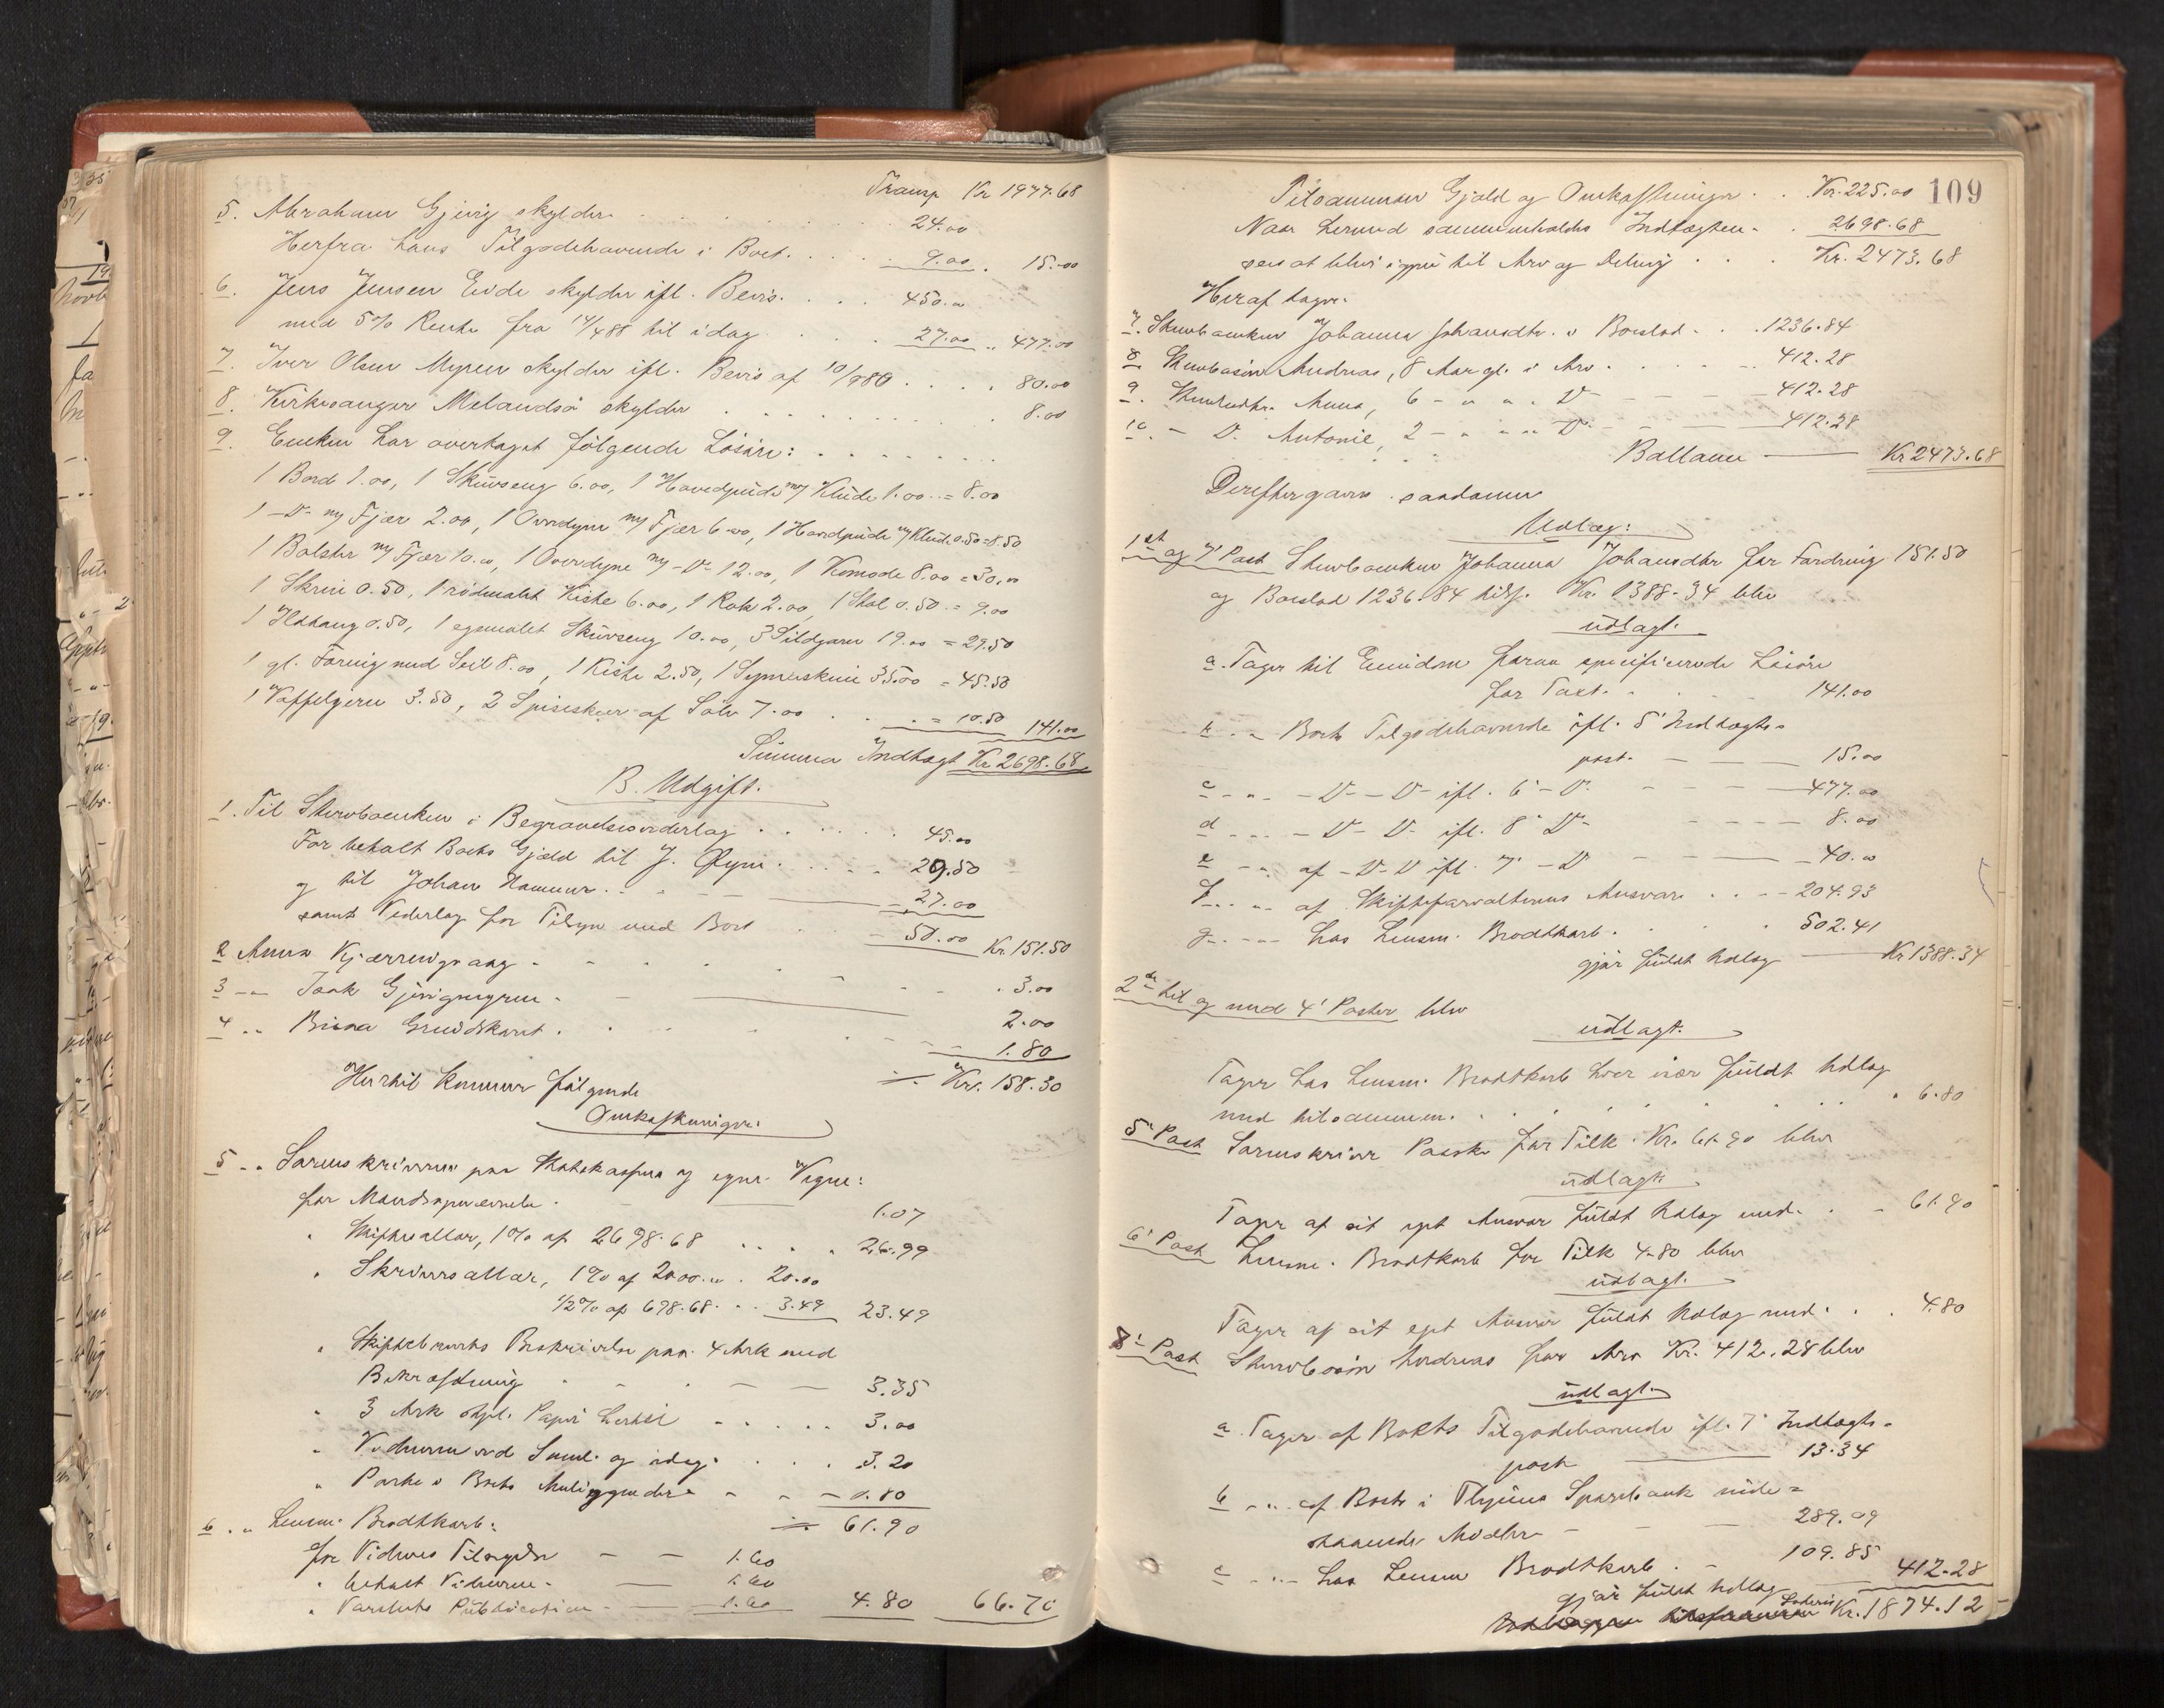 Transp Kr 1977.68
5. Abraham Gjerig skylder 24.00
Herfra hans Tilgodehavende i Boet 9.00 15.00
6. Jens Jensen Eide skylder ifl. Bevis 450.00
med 5% Rente fra 14/4 88 til idag 27.00 477.00
7. Iver Olsen Myren skylder ifl. Bevis af 10/1 80 80.00
8. Kirkesanger Melandsø skylder 8.00
9. Enken har overtaget følgende Løsøre:
1 Bord 1.00, 1 Skuvseng 6.00, 1 Hovedpude m/ Klude 1.00 = 8.00
1 -D- m/ Fjær 2.00, 1 Overdyne m/ Fjær 6.00, 1 Hovedpude m/ Klude 0.50 = 8.50
1 Bolster m/ Fjær 10.00, 1 Overdyne m/ -D- 12.00, 1 Komode 8.00 = 30.00
1 Skrin 0.50, 1 rødmalet Kiste 6.00, 1 Rok 2.00, 1 Stol 0.50 = 9.00
1 Ildtang 0.50, 1 egemalet Skuvseng 10.00, 3 Sildgarn 19.00 = 29.50
1 gl. Færing med Seil 8.00, 1 Kiste 2.50, 1 Symaskine 35.00 = 45.50
1 Vaffeljern 3.50, 2 Spiseskeer af Sølv 7.00 = 10.50 141.00
Summa Indtægt Kr 2698.68
B. Udgift.
1. Til Stervboenken i Begravelsesvederlag 45.00
For betalt Boets Gjæld til J. Øyen 29.50
og til Johan Hammer 27.00
samt Vederlag for Tilsyn med Boet 50.00 Kr. 151.50
2 Anna Kjærringvaag 3.00
3 -"- Isak Gjerigmyren 2.00
4 " Grundskaret 1.80
Kr. 158.30
Hertil kommer følgende
Omkostninger:
5 " Sorenskriveren paa Statskassens og egne Vegne:
for 1.07
" Skifteallar, 1% af 2698.68 26.99
" Skriversallar, 1% af 2000.00 20.00
1/2% af 698.68 3.49 23.49
" Skiftebrevets Beskrivelse paa 4 Ark med
Bekræftning 3.35
" 3 Ark stpl. Papir hertil 3.00
" Vidnerne ved Saml. og idag 3.20
" Porto i Boets Anliggender 0.80
61.90
6 " Lensm. Brodtkorb:
for 1.60
" betalt Vidnerne 1.60
" Varslets Publication 1.60 4.80 66.70
109
Tilsammen Gjæld og Omkostninger Kr. 225.00
Naar hermed sammenholdes Indtægten 2698.68
sees at blive igjen til Arv og Deling Kr. 2473.68
Heraf tager:
7. Stervboenken Johanna Johansdtr. i Boeslod 1236.84
8 Stervbosøn Andreas, 8 Aar gl. i Arv 412.28
9. Stervbodtr. Anna, 6 - " " " D 412.28
10. - D. Antonie, 2 - " " " D 412.28
Ballance Kr 2473.68
Derefter gjøres saadanne
Udlæg:
1st og 7' Post Stervboenken Johanna Johansdtr for Fordring 151.50
og Boeslod 1236.84 tils. Kr. 1388.34 blev
udlagt:
a. Tager til Eiendom foran specificerede Løsøre
for Taxt 141.00
b " " Boets Tilgodehavende ifl. 5' Indtægts-
post 15.00
c - " - -D- -D- ifl. 6' -D- 477.00
d - " - -D- -D- ifl. 8' D- 8.00
e - " af -D- D ifl. 7' -D 40.00
f - " - af Skifteforvalterens Ansvar 204.93
g - " - hos Lensm. Brodtkorb 502.41
gjør fuldt Udlæg Kr 1388.34
2den til og med 4' Poster blev
udlagt:
Tager hos Lensm. Brodtkorb hver især fuldt Udlæg
med tilsammen 6.80
5' Post Sorenskriver for Tilk. Kr. 61.90 blev
udlagt:
Tager af sit eget Ansvar fuldt Udlæg med 61.90
6' Post Lensm. Brodtkorb for Tilk 4.80 blev
udlagt:
Tager af sit eget Ansvar fuldt Udlæg med 4.80
8' Post Stervbosøn Andreas for Arv Kr. 412.28 blev
udlagt:
a. Tager af Boets Tilgodehavende ifl. 7' Indtægts-
post 13.34
b - " - af Boets i Sparebank inde-
staaende Midler 289.09
c - " - hos Lensm Brodtkorb 109.85
gjør fuldt Udlæg 412.28
Kr. 1874.12